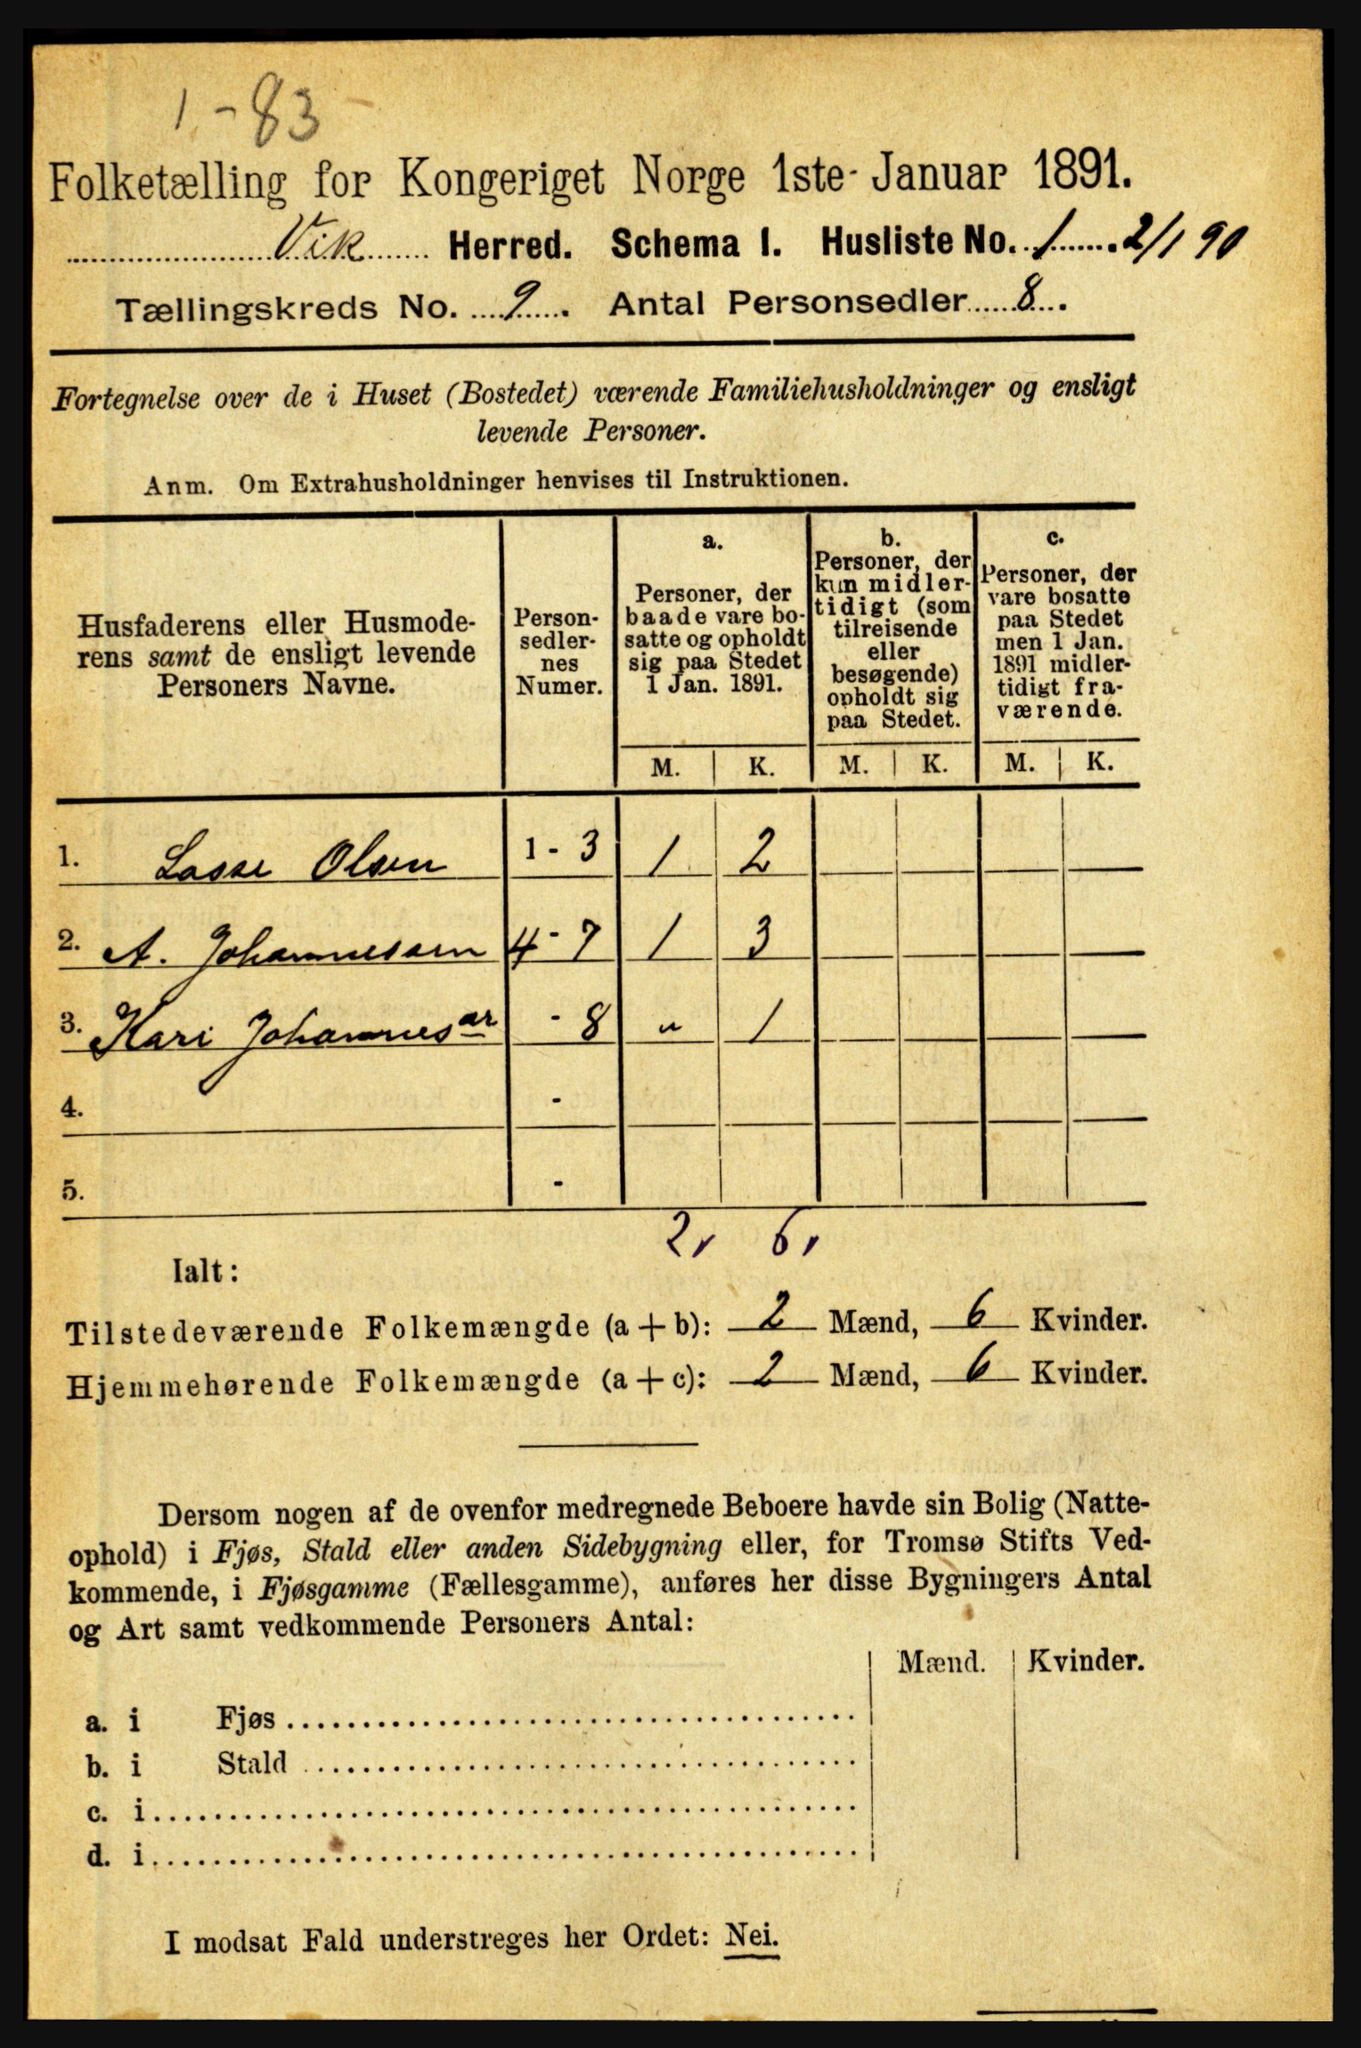 1 - 83
Folketælling for Kongeriget Norge 1ste Januar 1891.
Vik Herred. Schema I. Husliste No. 1 2/1 90
Tællingskreds No. 9. Antal Personsedler 8.
Fortegnelse over de i Huset (Bostedet) værende Familiehusholdninger og ensligt
levende Personer.
Anm. Om Extrahusholdninger henvises til Instruktionen.
Husfaderens eller Husmode-
rens samt de ensligt levende
Personers Navne.
Person-
sedler-
nes
Numer.
a.
Personer, der
baade vare bo-
satte og opholdt
sig paa Stedet
1 Jan. 1891.
b.
Personer, der
kun midler-
tidigt (som
tilreisende
eller
besøgende)
opholdt sig
paa Stedet.
c.
Personer, der
vare bosatte
paa Stedet
men 1 Jan.
1891 midler-
tidigt fra-
værende.
M. K. M. K. M. K.
1. Lasse Olsen 1 - 3 1 2
2. A. Johannessen 4 - 7 1 3
3. Kari Johannesar - 8 " 1
4. -
5. -
2, 6,
Ialt:
Tilstedeværende Folkemængde (a + b): 2 Mænd, 6 Kvinder.
Hjemmehørende Folkemængde (a + c): 2 Mænd, 6 Kvinder.
Dersom nogen af de ovenfor medregnede Beboere havde sin Bolig (Natte-
ophold) i Fjøs, Stald eller anden Sidebygning eller, for Tromsø Stifts Ved-
kommende, i Fjøsgamme (Fællesgamme), anføres her disse Bygningers Antal
og Art samt vedkommende Personers Antal:
Mænd. Kvinder.
a. i Fjøs
b. i Stald
c. i
d. i
I modsat Fald understreges her Ordet: Nei.